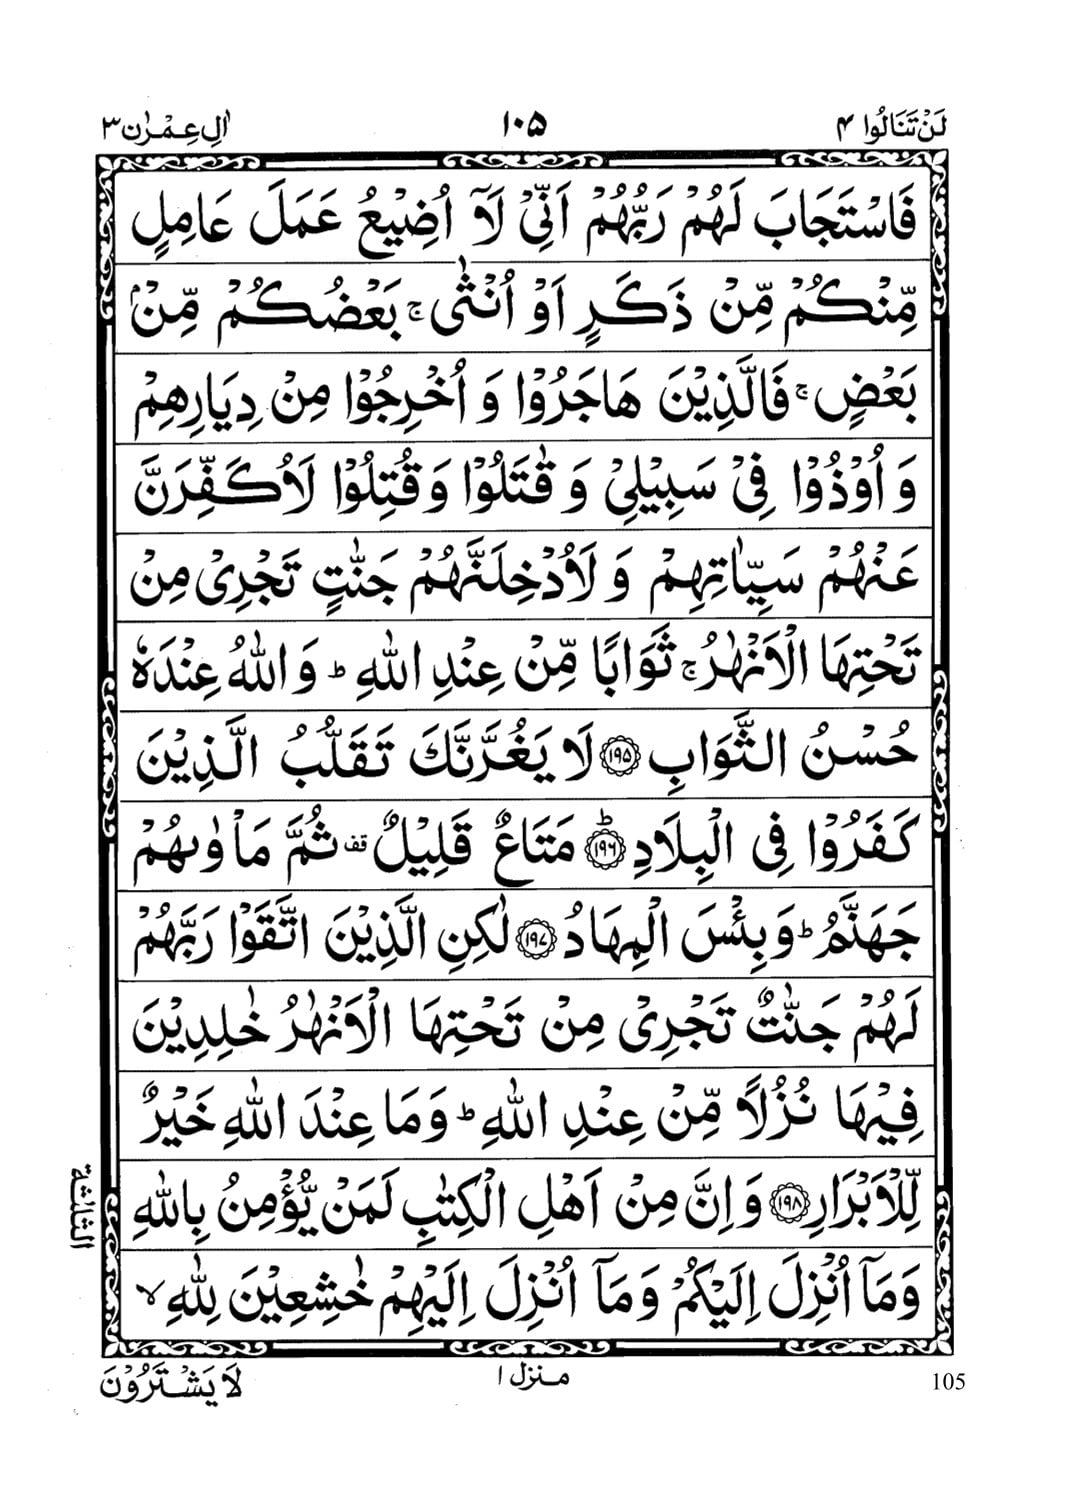 لَنْ تَنَالُوا ۴ ۱۰۵ اٰلِ عِمْرٰن ۳
فَاسْتَجَابَ لَهُمْ رَبُّهُمْ اَنِّیْ لَاۤ اُضِیْعُ عَمَلَ عَامِلٍ
مِّنْكُمْ مِّنْ ذَكَرٍ اَوْ اُنْثٰی ۚ بَعْضُكُمْ مِّنْۢ
بَعْضٍ ۚ فَالَّذِیْنَ هَاجَرُوْا وَ اُخْرِجُوْا مِنْ دِیَارِهِمْ
وَ اُوْذُوْا فِیْ سَبِیْلِیْ وَ قٰتَلُوْا وَ قُتِلُوْا لَاُكَفِّرَنَّ
عَنْهُمْ سَیِّاٰتِهِمْ وَ لَاُدْخِلَنَّهُمْ جَنّٰتٍ تَجْرِیْ مِنْ
تَحْتِهَا الْاَنْهٰرُ ۚ ثَوَابًا مِّنْ عِنْدِ اللّٰهِ ؕ وَ اللّٰهُ عِنْدَهٗ
حُسْنُ الثَّوَابِ ﴿۱۹۵﴾ لَا یَغُرَّنَّكَ تَقَلُّبُ الَّذِیْنَ
كَفَرُوْا فِی الْبِلَادِ ﴿۱۹۶﴾ؕ مَتَاعٌ قَلِیْلٌ ۫ ثُمَّ مَاْوٰىهُمْ
جَهَنَّمُ ؕ وَ بِئْسَ الْمِهَادُ ﴿۱۹۷﴾ لٰكِنِ الَّذِیْنَ اتَّقَوْا رَبَّهُمْ
لَهُمْ جَنّٰتٌ تَجْرِیْ مِنْ تَحْتِهَا الْاَنْهٰرُ خٰلِدِیْنَ
فِیْهَا نُزُلًا مِّنْ عِنْدِ اللّٰهِ ؕ وَ مَا عِنْدَ اللّٰهِ خَیْرٌ
لِّلْاَبْرَارِ ﴿۱۹۸﴾ وَ اِنَّ مِنْ اَهْلِ الْكِتٰبِ لَمَنْ یُّؤْمِنُ بِاللّٰهِ
الثلثة
وَ مَاۤ اُنْزِلَ اِلَیْكُمْ وَ مَاۤ اُنْزِلَ اِلَیْهِمْ خٰشِعِیْنَ لِلّٰهِ ۙ
منزل ۱ لَا یَشْتَرُوْنَ
105